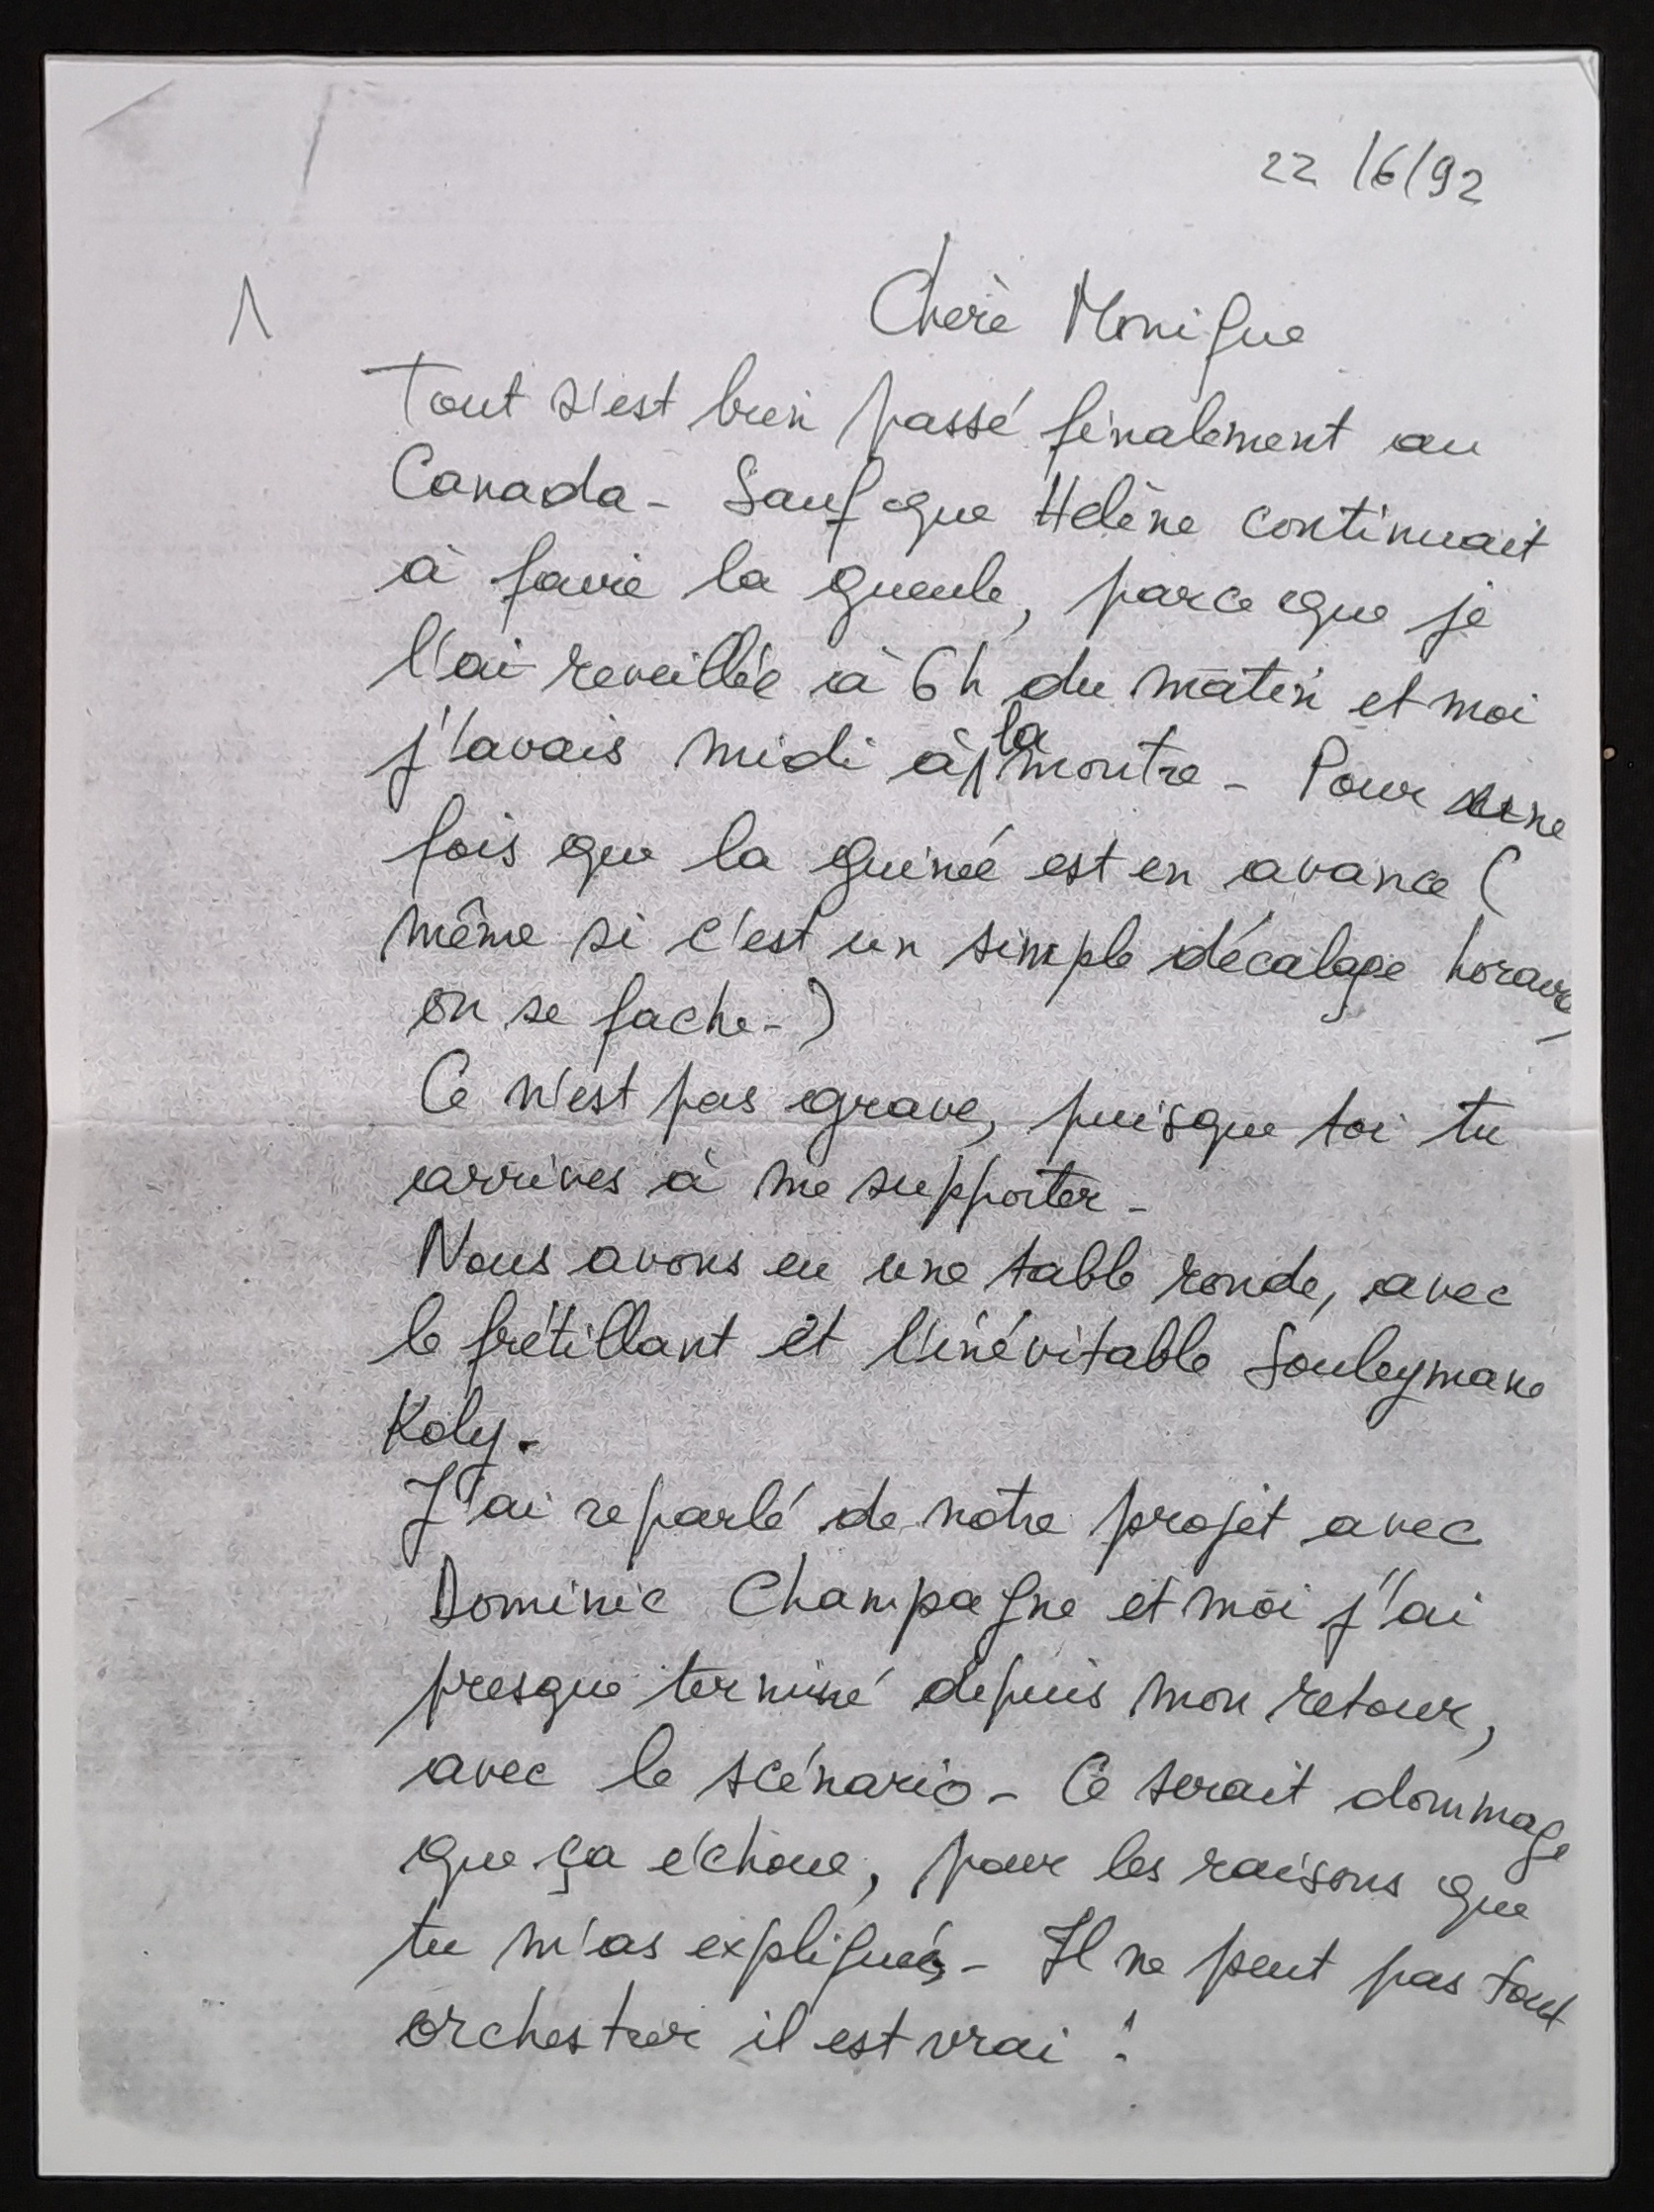 22/6/92
1
Chère Monique
Tout s'est bien passé finalement au
Canada - Sauf que Hélène continuait
à faire la gueule, parce que je
l'ai reveillée à 6h du matin et moi
j'avais midi à la montre - Pour une
fois que la guinée est en avance (
même si c'est un simple décalage horaire,
on se fache -)
Ce n'est pas grave, puisque toi tu
arrives à me supporter -
Nous avons eu une table ronde, avec
le frétillant et l'inévitable Souleymane
Koly.
J'ai reparlé de notre projet avec
Dominic Champagne et moi j'ai
presque terminé depuis mon retour,
avec le scénario - Ce serait dommage
que ça échoue, pour les raisons que
tu m'as expliqués - Il ne peut pas tout
orchestrer il est vrai !